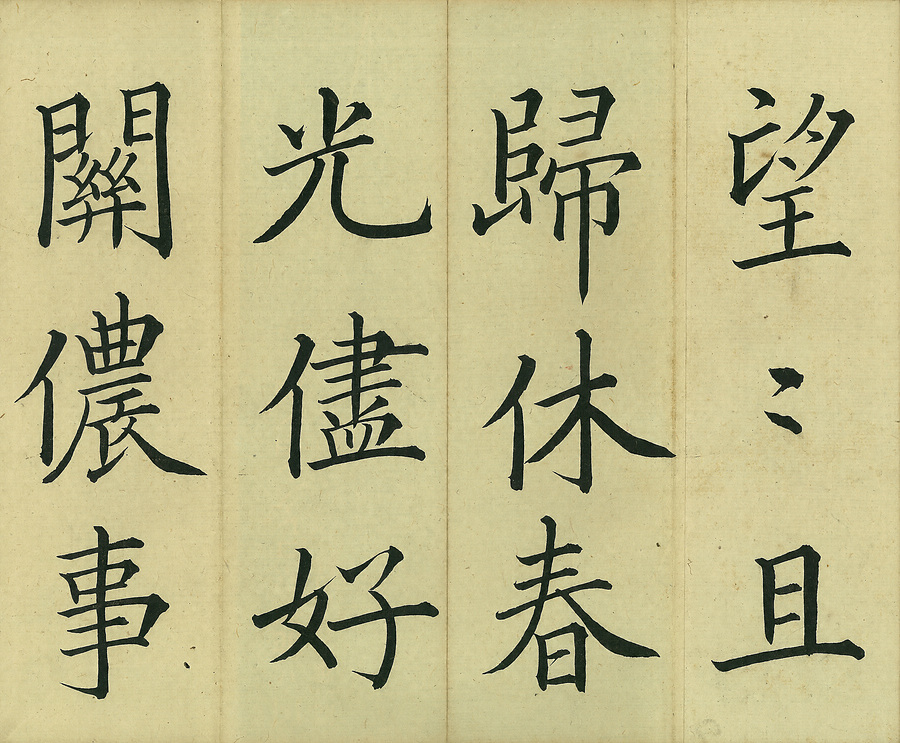 望〻且
歸休春
光儘好
關儂事